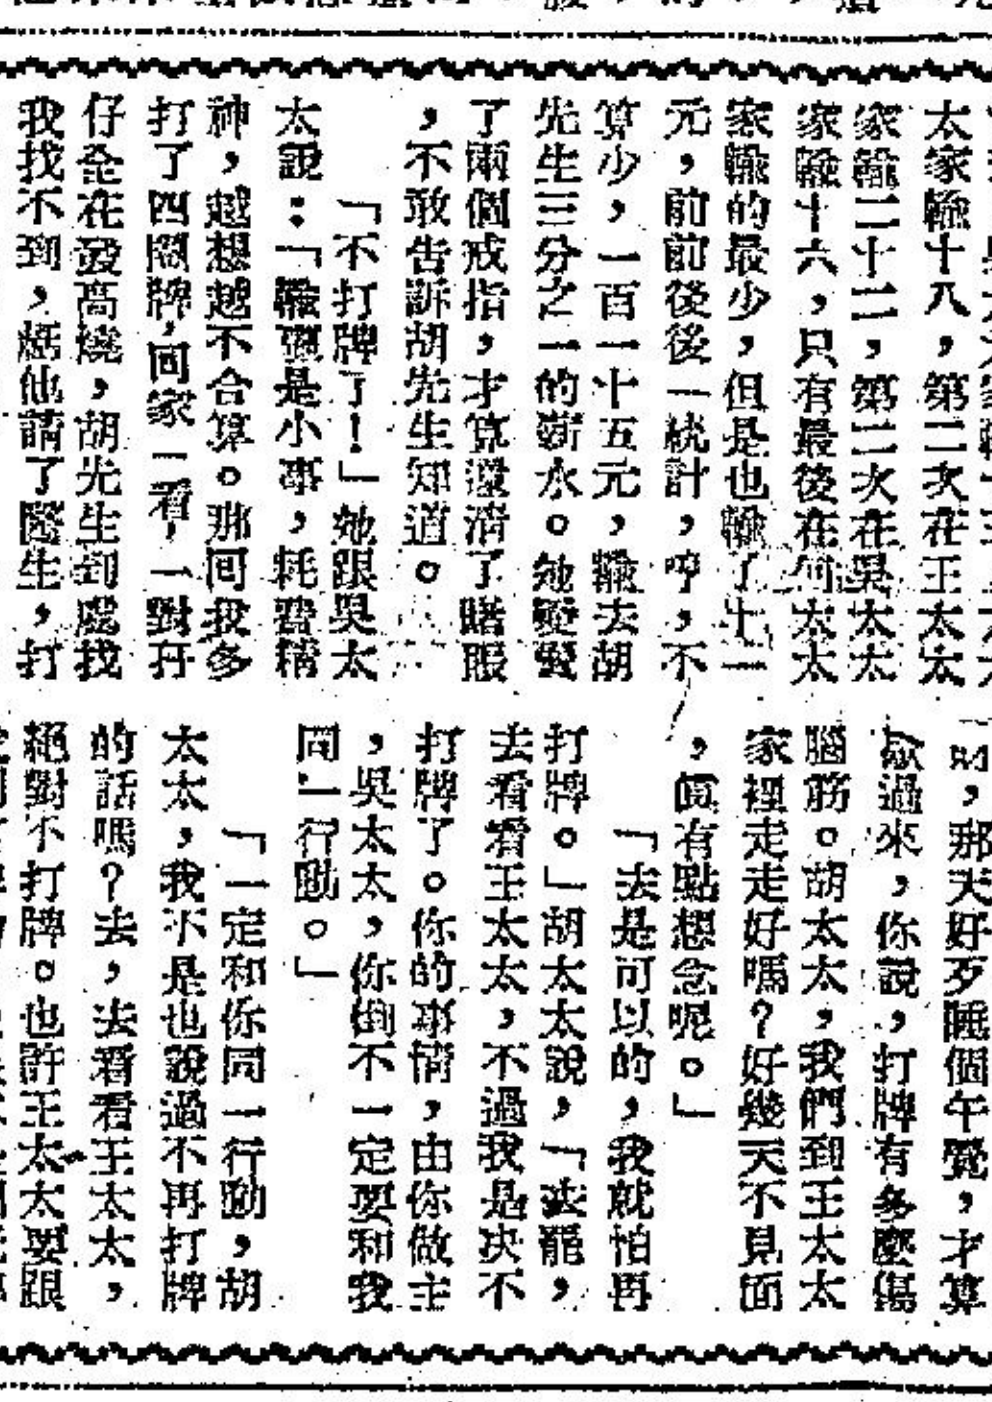 太家輸十八，第二次在王太太
家輸二十二，第二次在吳太太
家輸十六，只有最後在何太太
家輸的最少，但是也輸了十一
元，前前後後一統計，哼，不
算少，一百一十五元，輸去胡
先生三分之一的薪水。她變賣
了兩個戒指，才算還清了賭賬
，不敢告訴胡先生知道。
「不打牌了！」她跟吳太
太說：「輸贏是小事，耗費精
神，越想越不合算。那回我多
打了四圈牌，回家一看，一對孖
仔全在發高燒，胡先生到處找
我找不到，趕他請了醫生，打
，那天好歹睡個午覺，才算
過來，你說，打牌有多麼傷
腦筋。胡太太，我們到王太太
家裡走走好嗎？好幾天不見面
，眞有點想念呢。」
「去是可以的，我就怕再
打牌。」胡太太說，「去罷，
去看看王太太，不過我是决不
打牌了。你的事情，由你做主
，吳太太，你倒不一定要和我
同一行動。」
「一定和你同一行動，胡
太太，我不是也說過不再打牌
的話嗎？去，去看看王太太，
絕對不打牌。也許王太太要跟